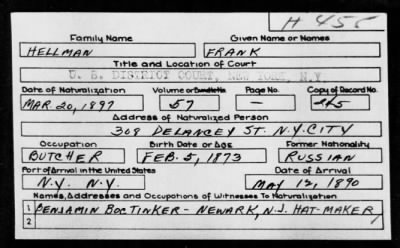 H 455
Family Name Given Name or Names
HELLMAN FRANK
Title and Location of Court
U. S. DISTRICT COURT, NEW YORK, N.Y.
Date of Naturalization Volume or Page No. Copy of Record No.
MAR. 20, 1897 57 — 265
Address of Naturalized Person
308 DELANCEY ST. N.Y. CITY
Occupation Birth Date or Age Former Nationality
BUTCHER FEB. 5, 1873 RUSSIAN
Port of Arrival in the United States Date of Arrival
N.Y. N.Y. MAY 12, 1890
Names, Addresses and Occupations of Witnesses To Naturalization
1 BENJAMIN BOCTINKER - NEWARK, N.J. HAT-MAKER
2